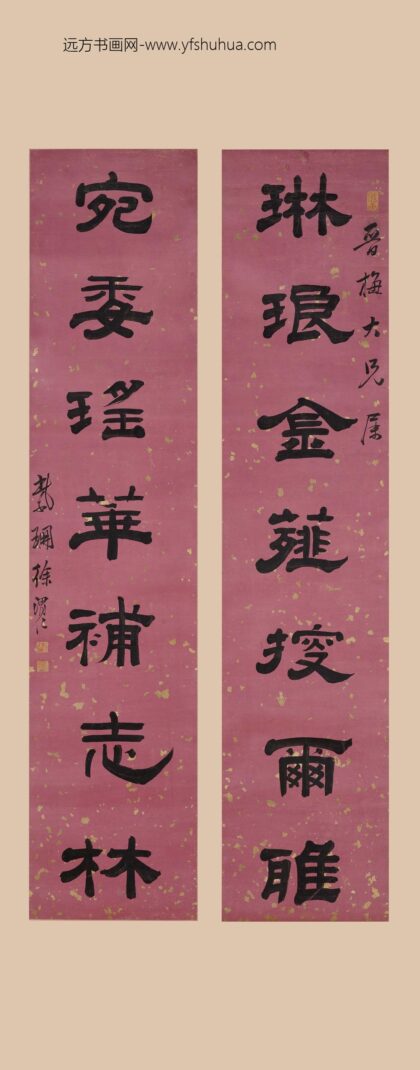 远方书画网-www.yfshuhua.com
晉梅大兄属
琳琅金薤搜爾雅
宛委瑤華補志林
紫珊徐渭仁